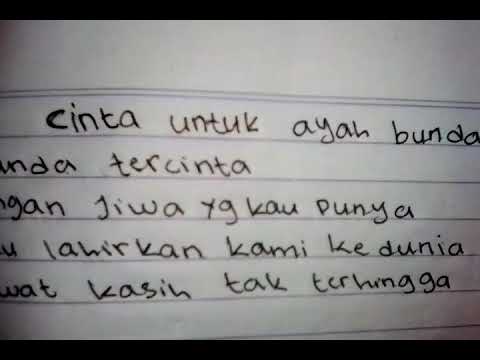 Cinta untuk ayah bunda
unda tercinta
ngan Jiwa yg kau punya
u lahirkan kami ke dunia
wat kasih tak terhingga